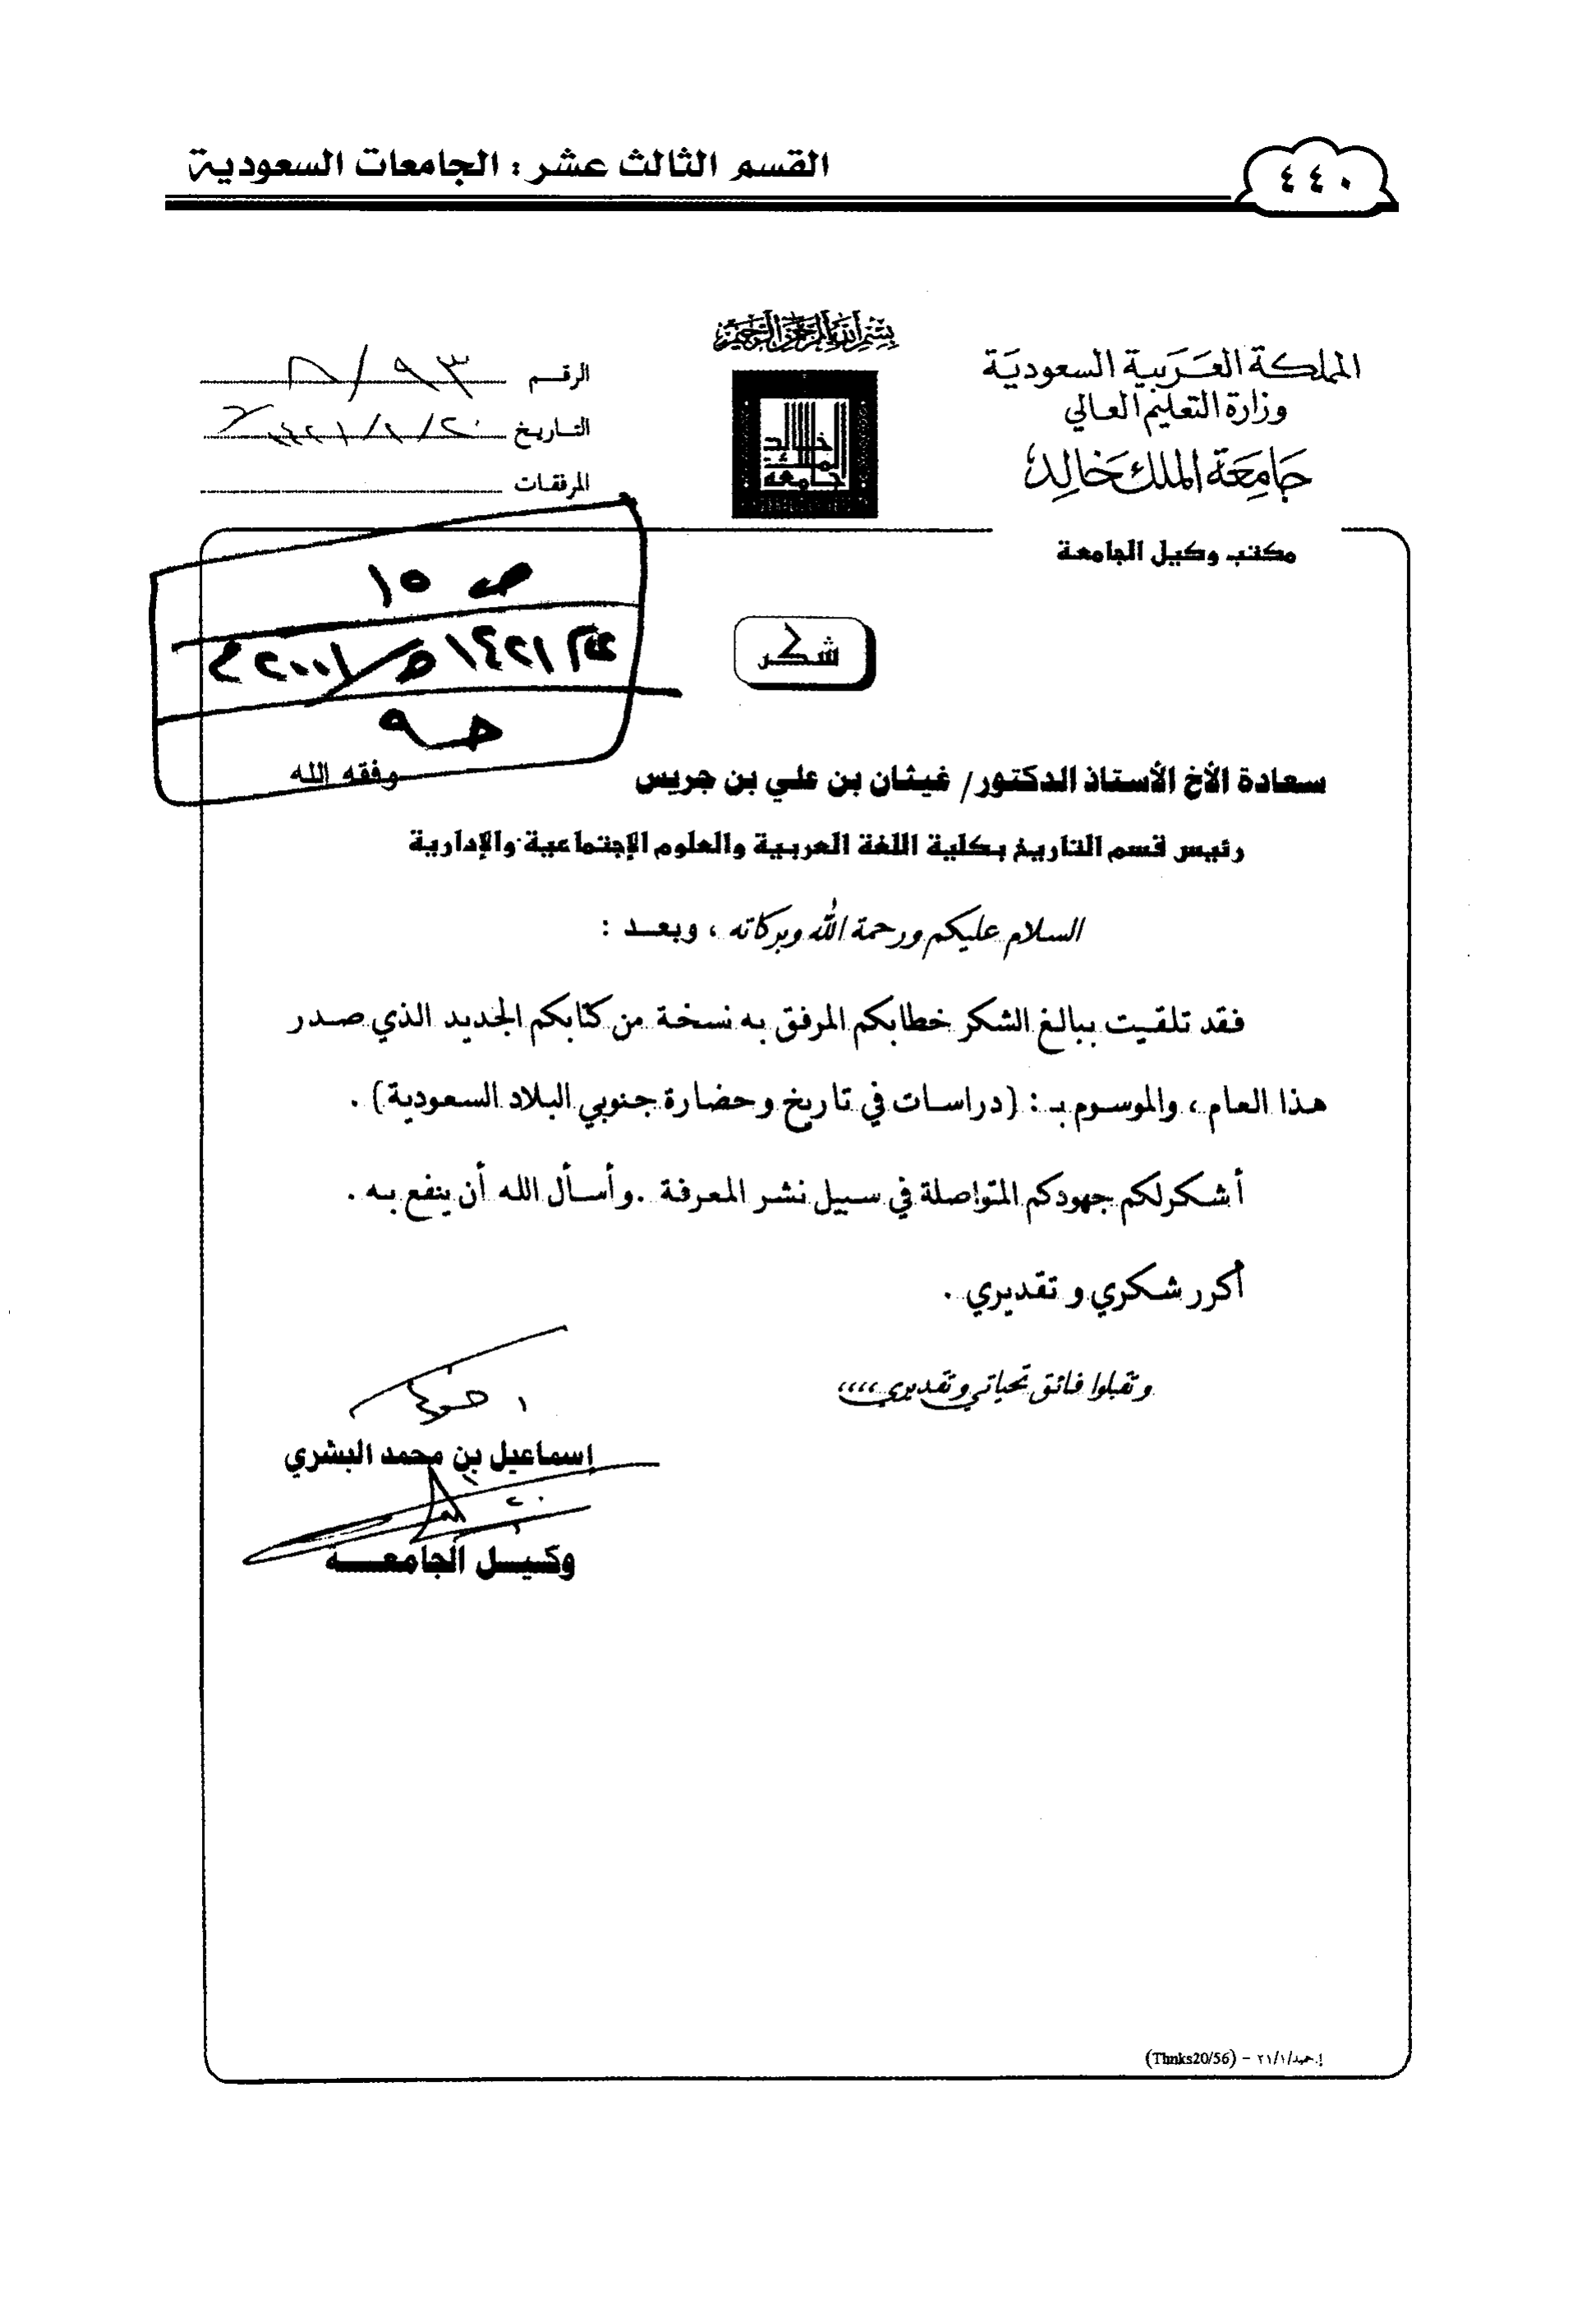 ٤٤٠
القسم الثالث عشر : الجامعات السعودية
بسم الله الرحمن الرحيم
المملكة العربية السعودية
وزارة التعليم العالي
جامعة الملك خالد
مكتب وكيل الجامعة
جامعة الملك خالد
الرقم
التاريخ
المرفقات
ص ١٥
١٤٢١هـ/٢٠٠١م
شكر
سعادة الأخ الأستاذ الدكتور/ غيثان بن علي بن جريس وفقه الله
رئيس قسم التاريخ بكلية اللغة العربية والعلوم الإجتماعية والإدارية
السلام عليكم ورحمة الله وبركاته ، وبعد :
فقد تلقيت ببالغ الشكر خطابكم المرفق به نسخة من كتابكم الجديد الذي صدر
هذا العام ، والموسوم بـ : (دراسات في تاريخ وحضارة جنوبي البلاد السعودية) .
أشكرلكم جهودكم المتواصلة في سبيل نشر المعرفة . وأسأل الله أن ينفع به .
أكرر شكري و تقديري .
وتقبلوا فائق تحياتي وتقديري ،،،،
إسماعيل بن محمد البشري
وكيل الجامعة
إ.حميد/٢١/١ - (Thnks20/56)